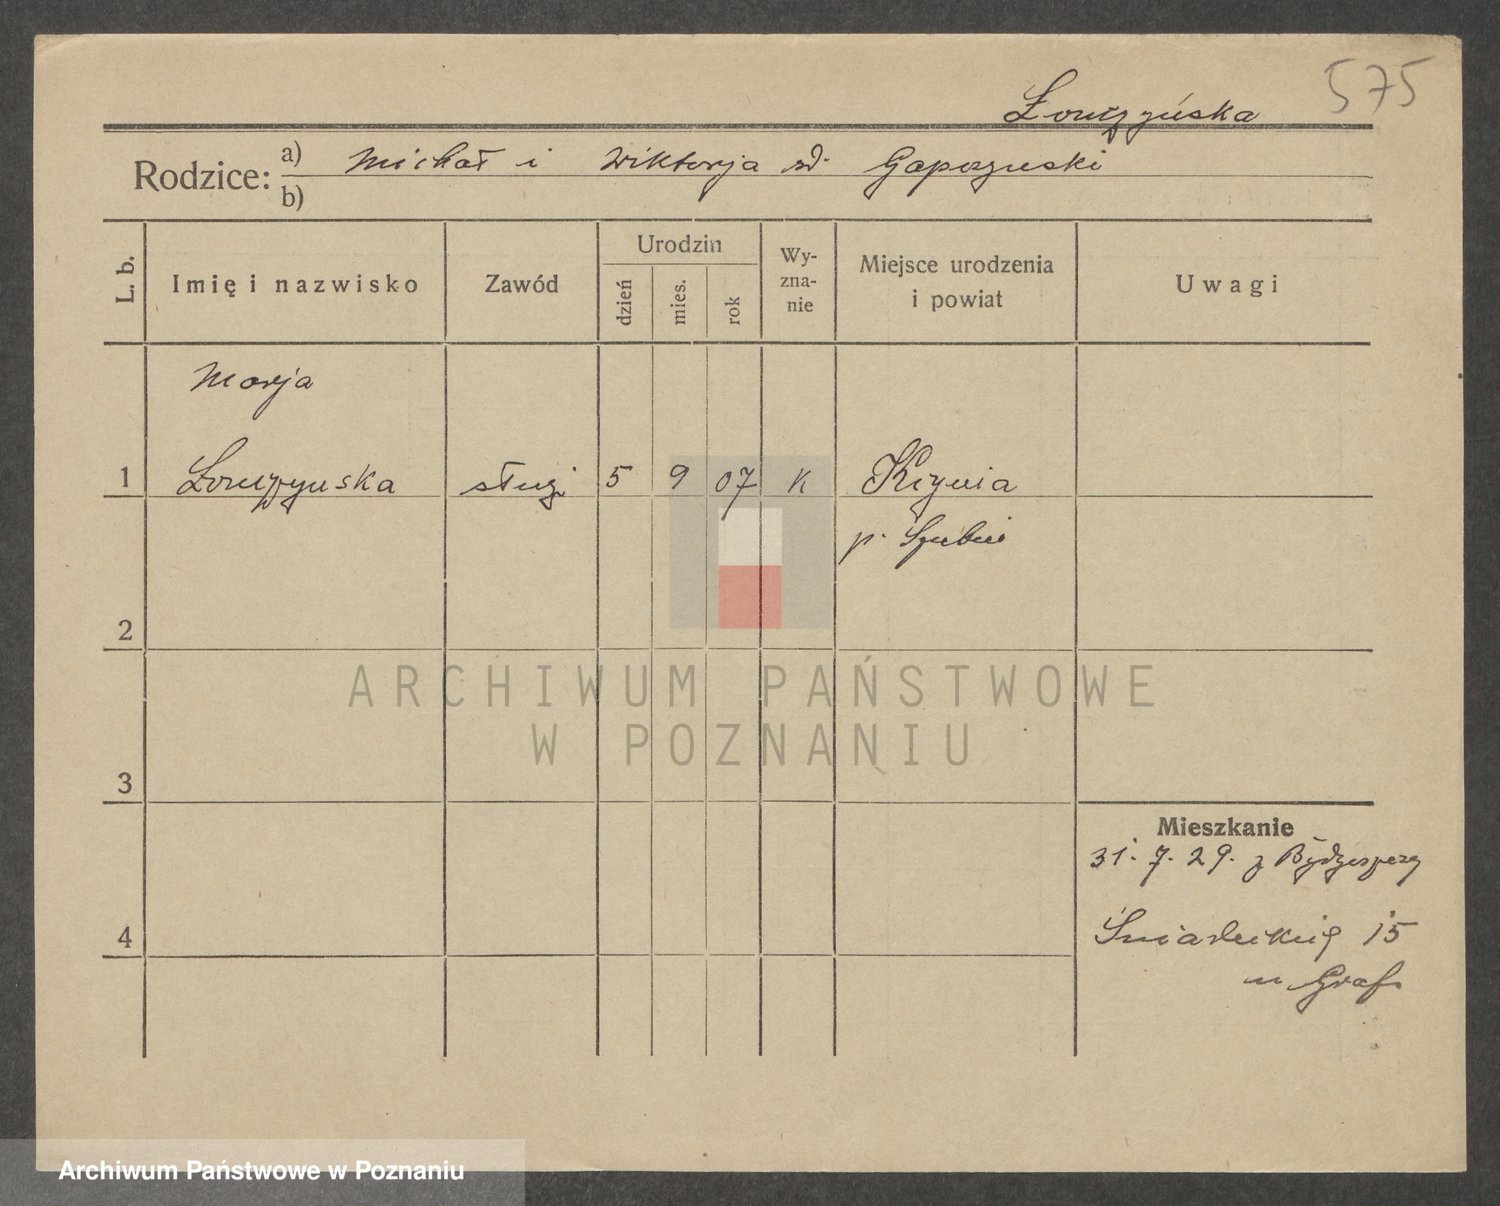 575
Rodzice: a) Michał i Wiktorja
b)
L. b.
Imię i nazwisko
Zawód
Urodzin
dzień
mies.
rok
Wy-
zna-
nie
Miejsce urodzenia
i powiat
Uwagi
Marja
1 5 9 07 K Kcynia
p. Szubin
2
3
4
Mieszkanie
31. 7. 29. z
15
Graf
ARCHIWUM PAŃSTWOWE
W POZNANIU
Archiwum Państwowe w Poznaniu